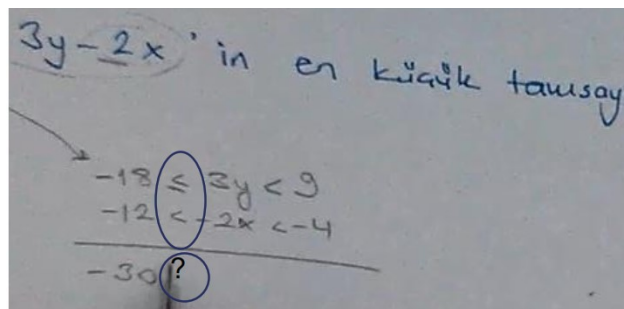 3y-2x'in en küçük tamsay
-18 ≤ 3y < 9
-12 < -2x < -4
-30 ?